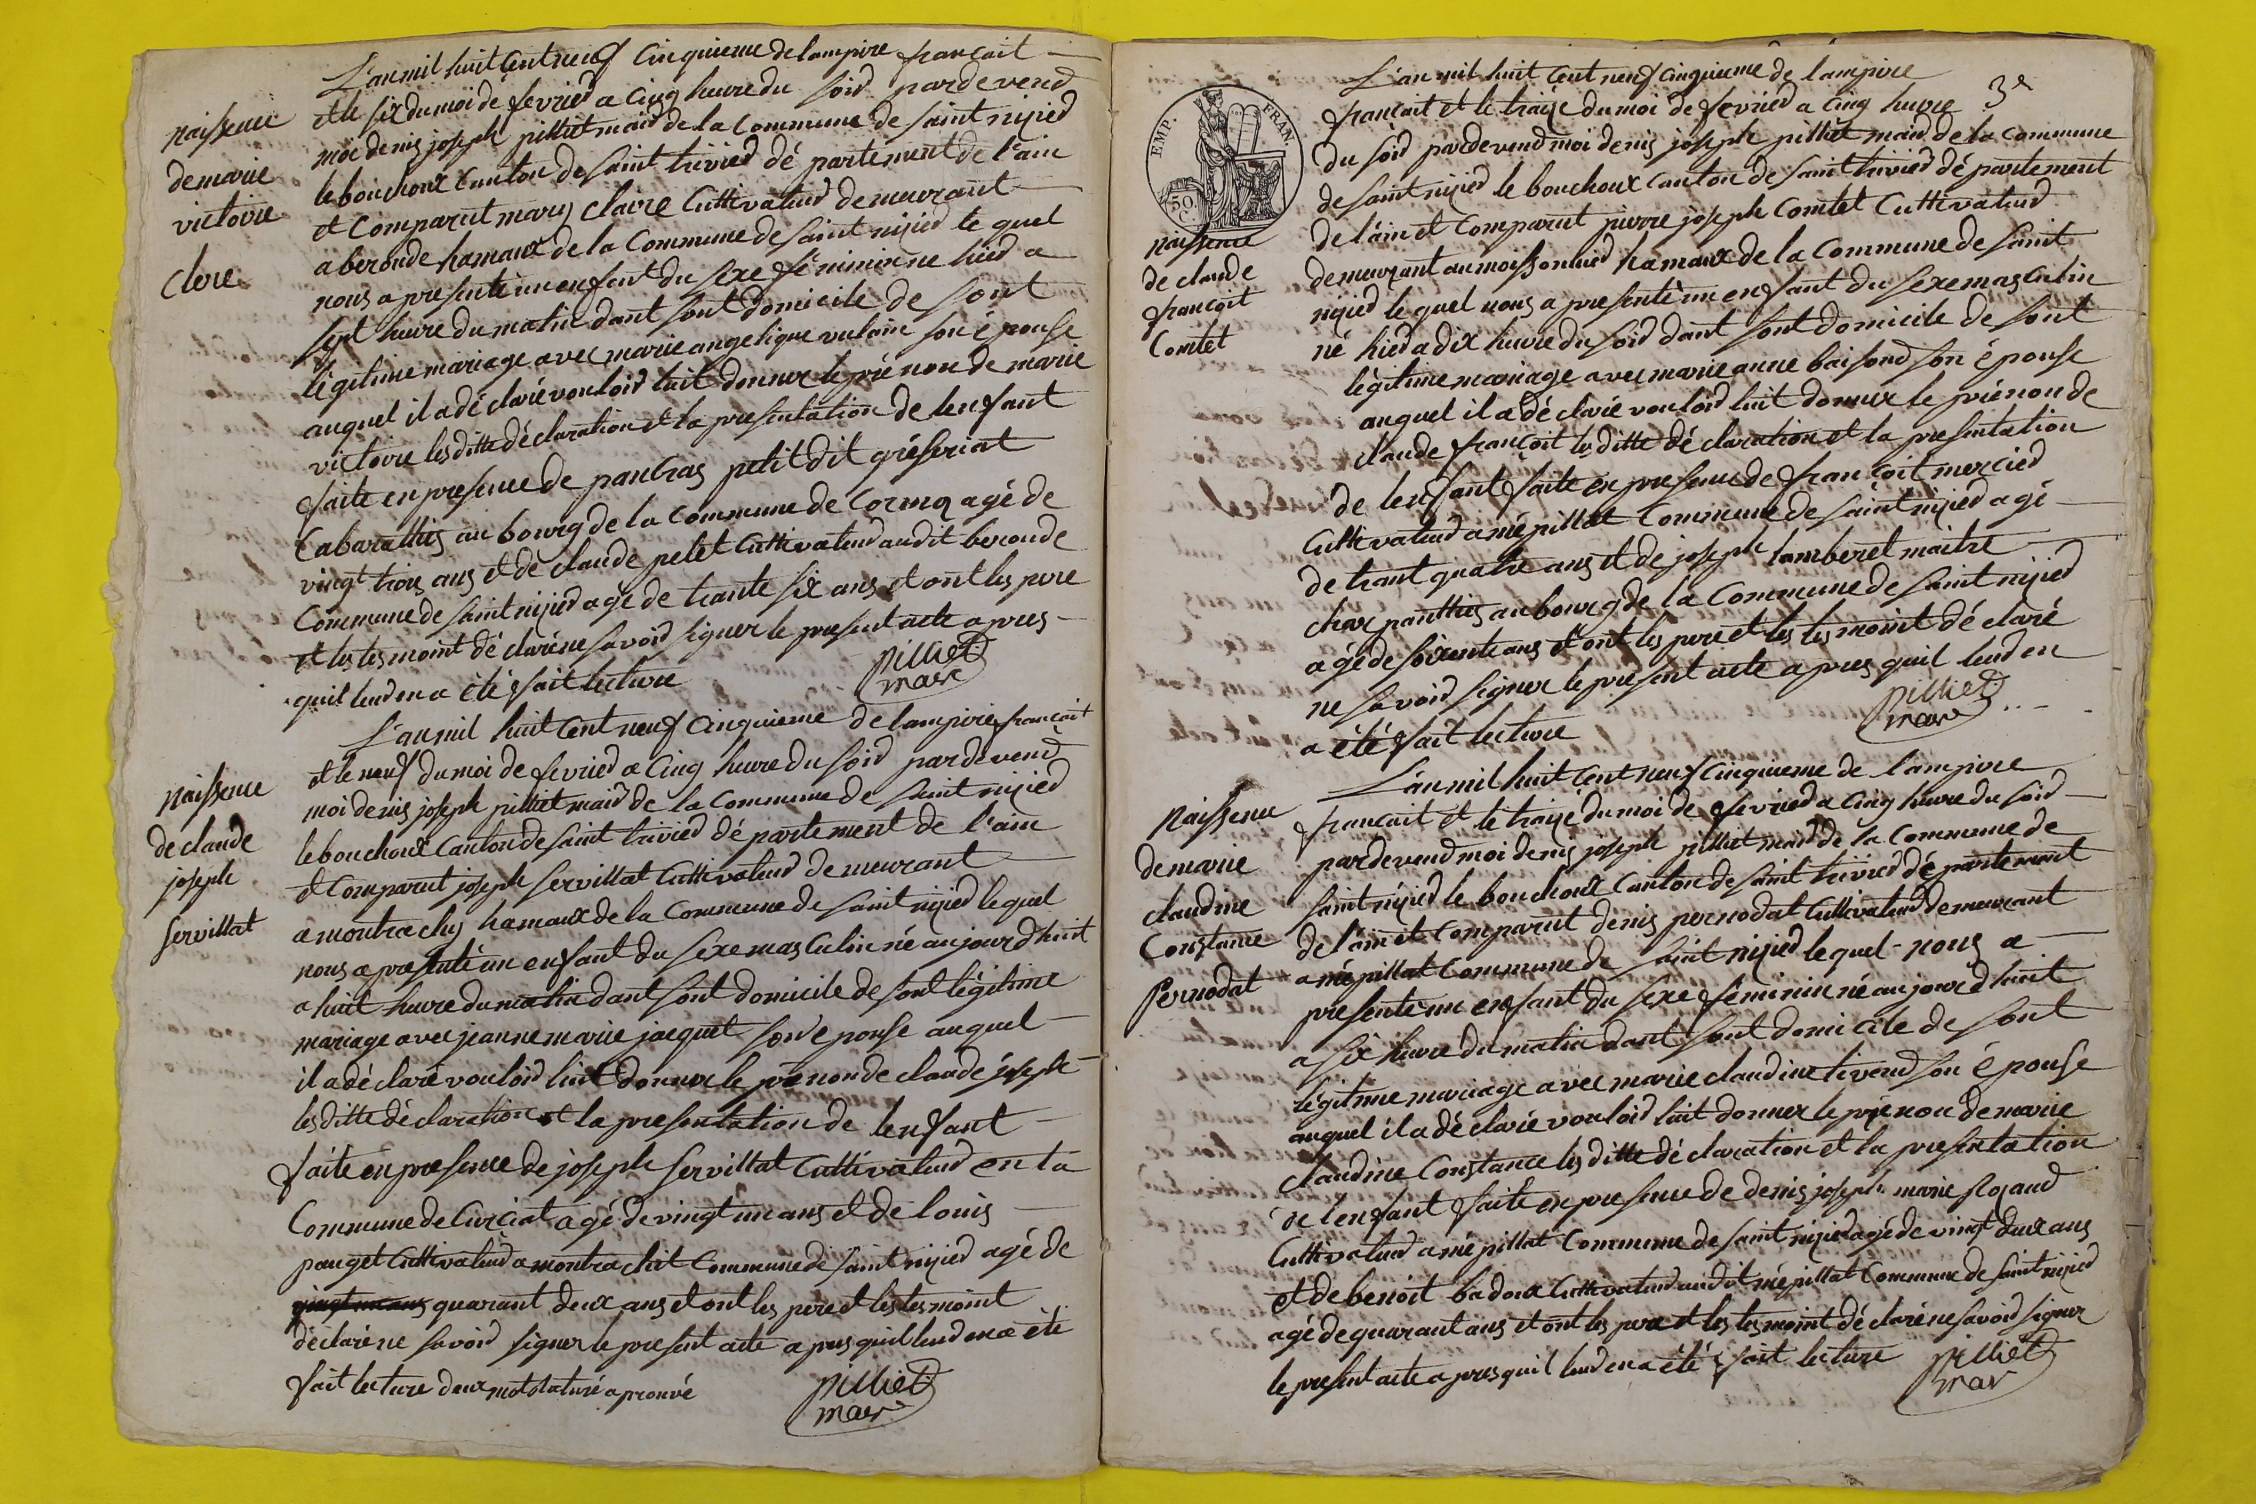 L'an mil huit Cent neuf Cinquieme de lampire françait
et le six du moi de fevried a Cinq heure du soid pardevend
moi denis joseph pilliet maid de la Commune de saint nizied
le bouchoux Canton de saint trivied dé partement de l'ain
et Comparut marey claire Cuttivatend demeurant
a beronde hamaux de la Commune de saint nizied le quel
nous a presenté un enfent du sexe féminin ne hied a
sept heure du matin dant sont domicile de sont
légitime mariage avec marie angelique vulain son é pouse
auquel il a dé claré vouloid luit donner le pré non de marie
victoire les ditte déclaration et la presentation de lenfant
faite en presence de pancras petit dit
Cabaratties au bourg de la Commune de Cormoz agé de
vingt trois ans et de claude petet Cuttivatend audit beronde
Commune de saint nizied agé de trante six ans et ont les pere
et les tesmoint dé claré ne savoid signer le present acte apres
quil lend en a été fait lecture
pilliet
mair
naissence
de marie
victoire
clere
L'an mil huit Cent neuf Cinquieme de lampire françait
et le neuf du moi de fevried a Cinq heure du soid pardevend
moi denis joseph pilliet maid de la Commune de saint nizied
le bouchoux Canton de saint trivied dé partement de l'ain
et Comparut joseph servillat Cuttivatend demeurant
a montrachy hamaux de la Commune de saint nizied le quel
nous a presenté un enfant du sexe masculin né aujourdhuit
a huit heure du matin dant sont domicile de sont légitime
mariage avec jeanne marie jacquet son é pouse auquel
il a déclaré vouloid luit donner le prénon de claude joseph
les ditte déclaration et la presentation de lenfant
faite en presence de joseph servillat Cuttivatend en la
Commune de Curciat agé de vingt un ans et de louis
pauget Cuttivatend a montrachit Commune de saint nizied agé de
vingt un ans quarant deux ans et ont les pere et les tesmoint
déclaré ne savoid signer le present acte a pres quil lend en a été
fait lecture deux mots raturé aprouvé
pilliet
mair
naissence
de claude
joseph
servillat
EMP. FRAN.
50
C.
3e
L'an mil huit Cent neuf Cinquieme de lampire
françait et le traize du moi de fevried a Cinq heure
du soid pardevend moi denis joseph pilliet maid de la Commune
de saint nizied le bouchoux Canton de saint trivied dé partement
de l'ain et Comparut pierre joseph Comtet Cuttivatend
demeurant au moissonnied hamaux de la Commune de saint
nizied le quel nous a presenté un enfant du sexe masculin
né hied a dix heure du soid dant sont domicile de sont
légitime mariage avec marie anne baisond son é pouse
auquel il a dé claré vouloid luit donner le prénon de
claude françoit les ditte déclaration et la presentation
de lenfant faite en presence de françoit mercied
Cuttivatend a mépillat Commune de saint nizied agé
de trant quatre ans et de joseph tamberet maitre
charpanthies au bourg de la Commune de saint nizied
agé de soixente ans et ont les pere et les tesmoint déclaré
ne savoid signer le present acte a pres quil lend en
a été fait lecture
pilliet
mair
naissence
de claude
françoit
Comtet
L'an mil huit Cent neuf Cinquieme de lampire
françait et le traize du moi de fevried a Cinq heure du soid
pardevend moi denis joseph pilliet maid de la Commune de
saint nizied le bouchoux Canton de saint trivied dé partement
de l'ain et Comparut denis pernodat Cuttivatend demeurant
a mépillat Commune de saint nizied lequel nous a
presenté un enfant du sexe féminin né aujourdhuit
a six heure du matin dant sont domicile de sont
légitime mariage avec marie claudine tivend son é pouse
auquel il a déclaré vouloid luit donner le prénon de marie
claudine Constance les ditte déclaration et la presentation
de lenfant faite en presence de denis joseph marie Rojaud
Cuttivatend a mépillat Commune de saint nizied agé de vingt deux ans
et de benoit badoux Cuttivatend audit mépillat Commune de saint nizied
agé de quarant ans et ont les pere et les tesmoint déclaré ne savoid signer
le present acte a pres quil lend en a été fait lecture
pilliet
mair
naissence
de marie
claudine
Constance
Pernodat